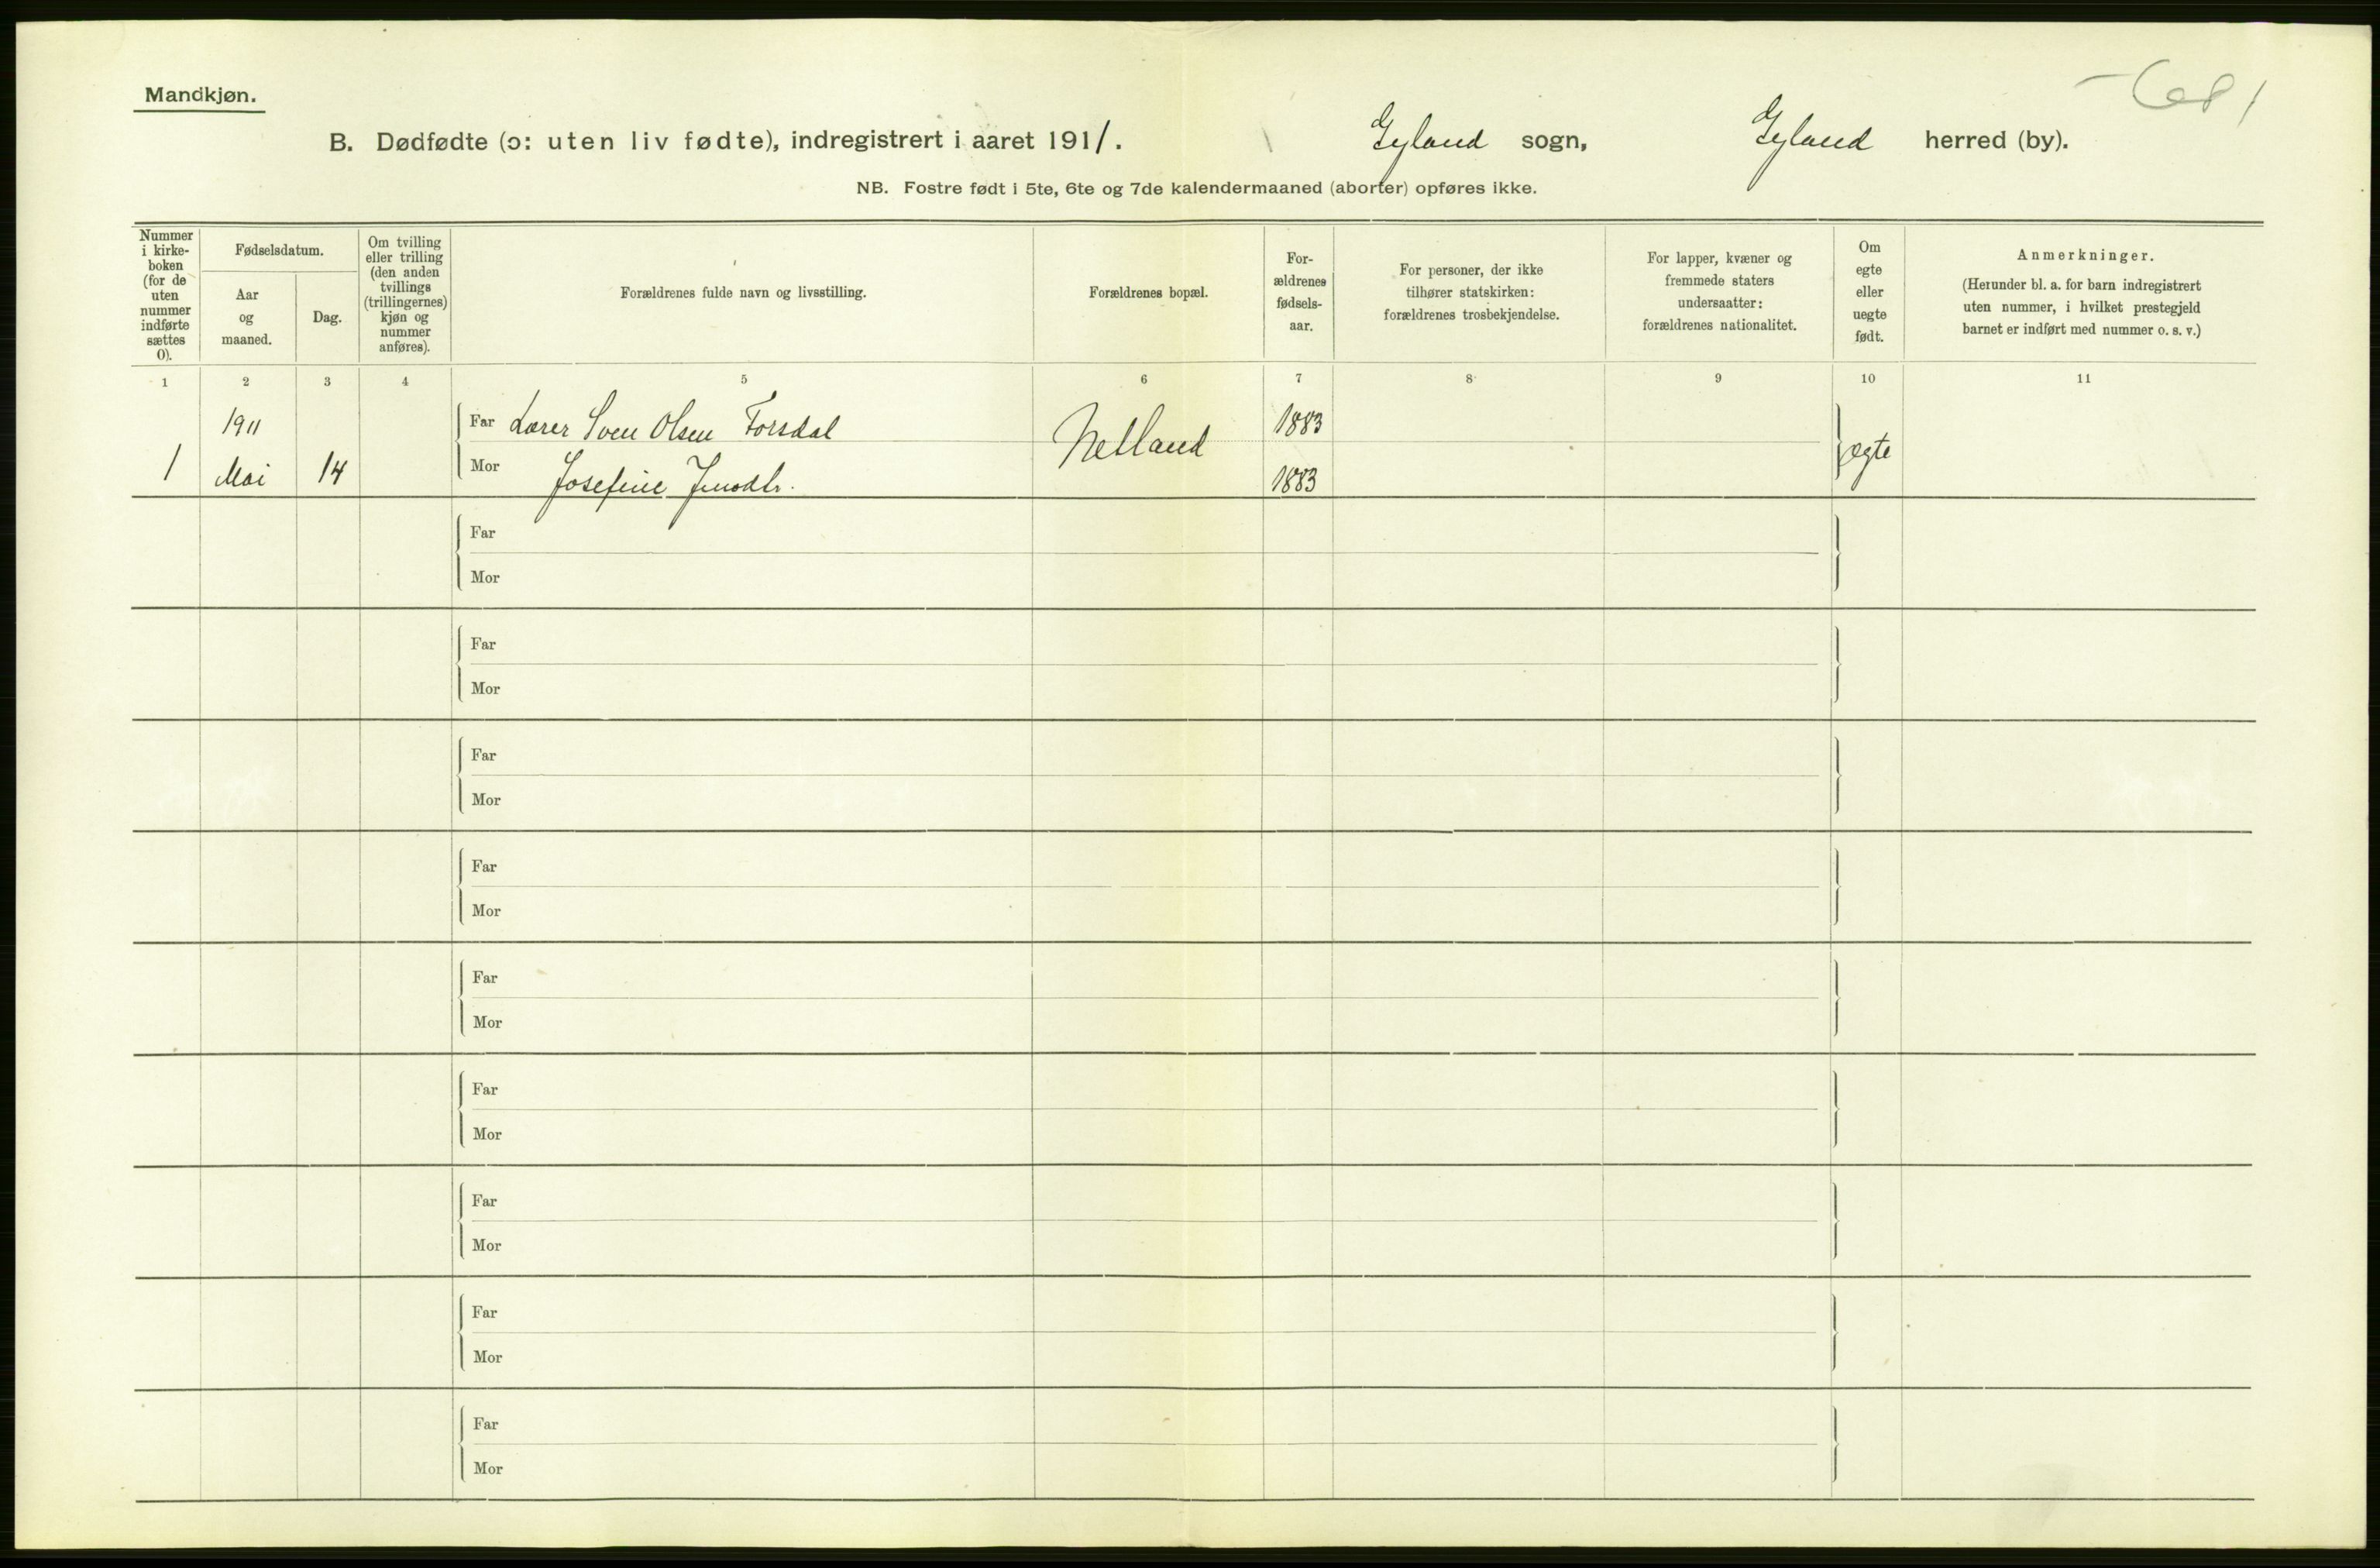 Mandkjøn.
B. Dødfødte (ɔ: uten liv fødte), indregistrert i aaret 1911. Gyland sogn, Gyland herred (by).
NB. Fostre født i 5te, 6te og 7de kalendermaaned (aborter) opføres ikke.
Nummer i kirke-boken (for de uten nummer indførte sættes 0).
Fødselsdatum.
Aar og maaned.
Dag.
Om tvilling eller trilling (den anden tvillings (trillingernes) kjøn og nummer anføres).
Forældrenes fulde navn og livsstilling.
Forældrenes bopæl.
For-ældrenes fødsels-aar.
For personer, der ikke tilhører statskirken: forældrenes trosbekjendelse.
For lapper, kvæner og fremmede staters undersaatter: forældrenes nationalitet.
Om egte eller uegte født.
Anmerkninger.
(Herunder bl. a. for barn indregistrert uten nummer, i hvilket prestegjeld barnet er indført med nummer o. s. v.)
1 2 3 4 5 6 7 8 9 10 11
1911 Far Lærer Sven Olsen Forsdal Netland 1883
1 Mai 14 Mor Josefine 1883 egte
Far
Mor
Far
Mor
Far
Mor
Far
Mor
Far
Mor
Far
Mor
Far
Mor
Far
Mor
Far
Mor